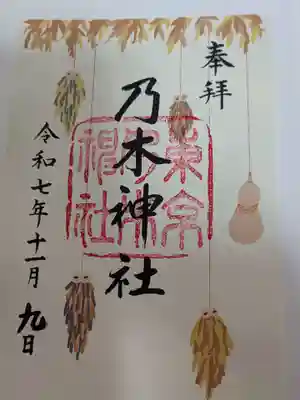 奉拝
乃木神社
東京乃木神社
令和七年十一月九日